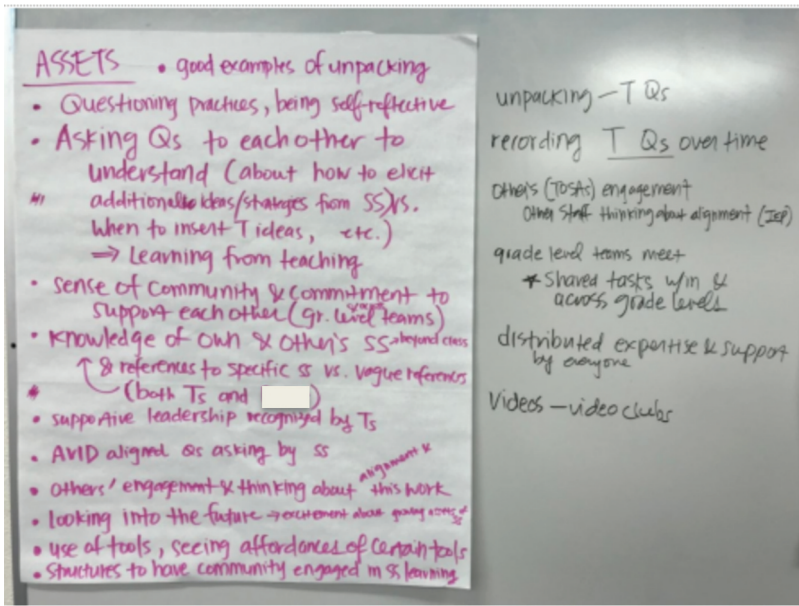 ASSETS • good examples of unpacking
• Questioning practices, being self-reflective
• Asking Qs to each other to
understand (about how to elicit
additional ideas/strategies from SS) vs.
when to insert T ideas, etc.)
⇒ Learning from teaching
• Sense of Community & commitment to
support each other (gr. level teams)
• Knowledge of own & other's SS → beyond class
↑ & references to specific SS vs. vague references
(both Ts and )
• supportive leadership recognized by Ts
• AVID aligned Qs asking by SS
alignment &
• others' engagement & thinking about this work
• looking into the future → excitement about growing of SS
• use of tools, seeing affordances of certain tools
• Structures to have community engaged in SS learning
unpacking — T Qs
recording T Qs over time
Other's (TOSAs) engagement
Other Staff thinking about alignment (IEP)
grade level teams meet
* Shared tasks w/in &
across grade levels
distributed expertise & support
by everyone
Videos — video clubs